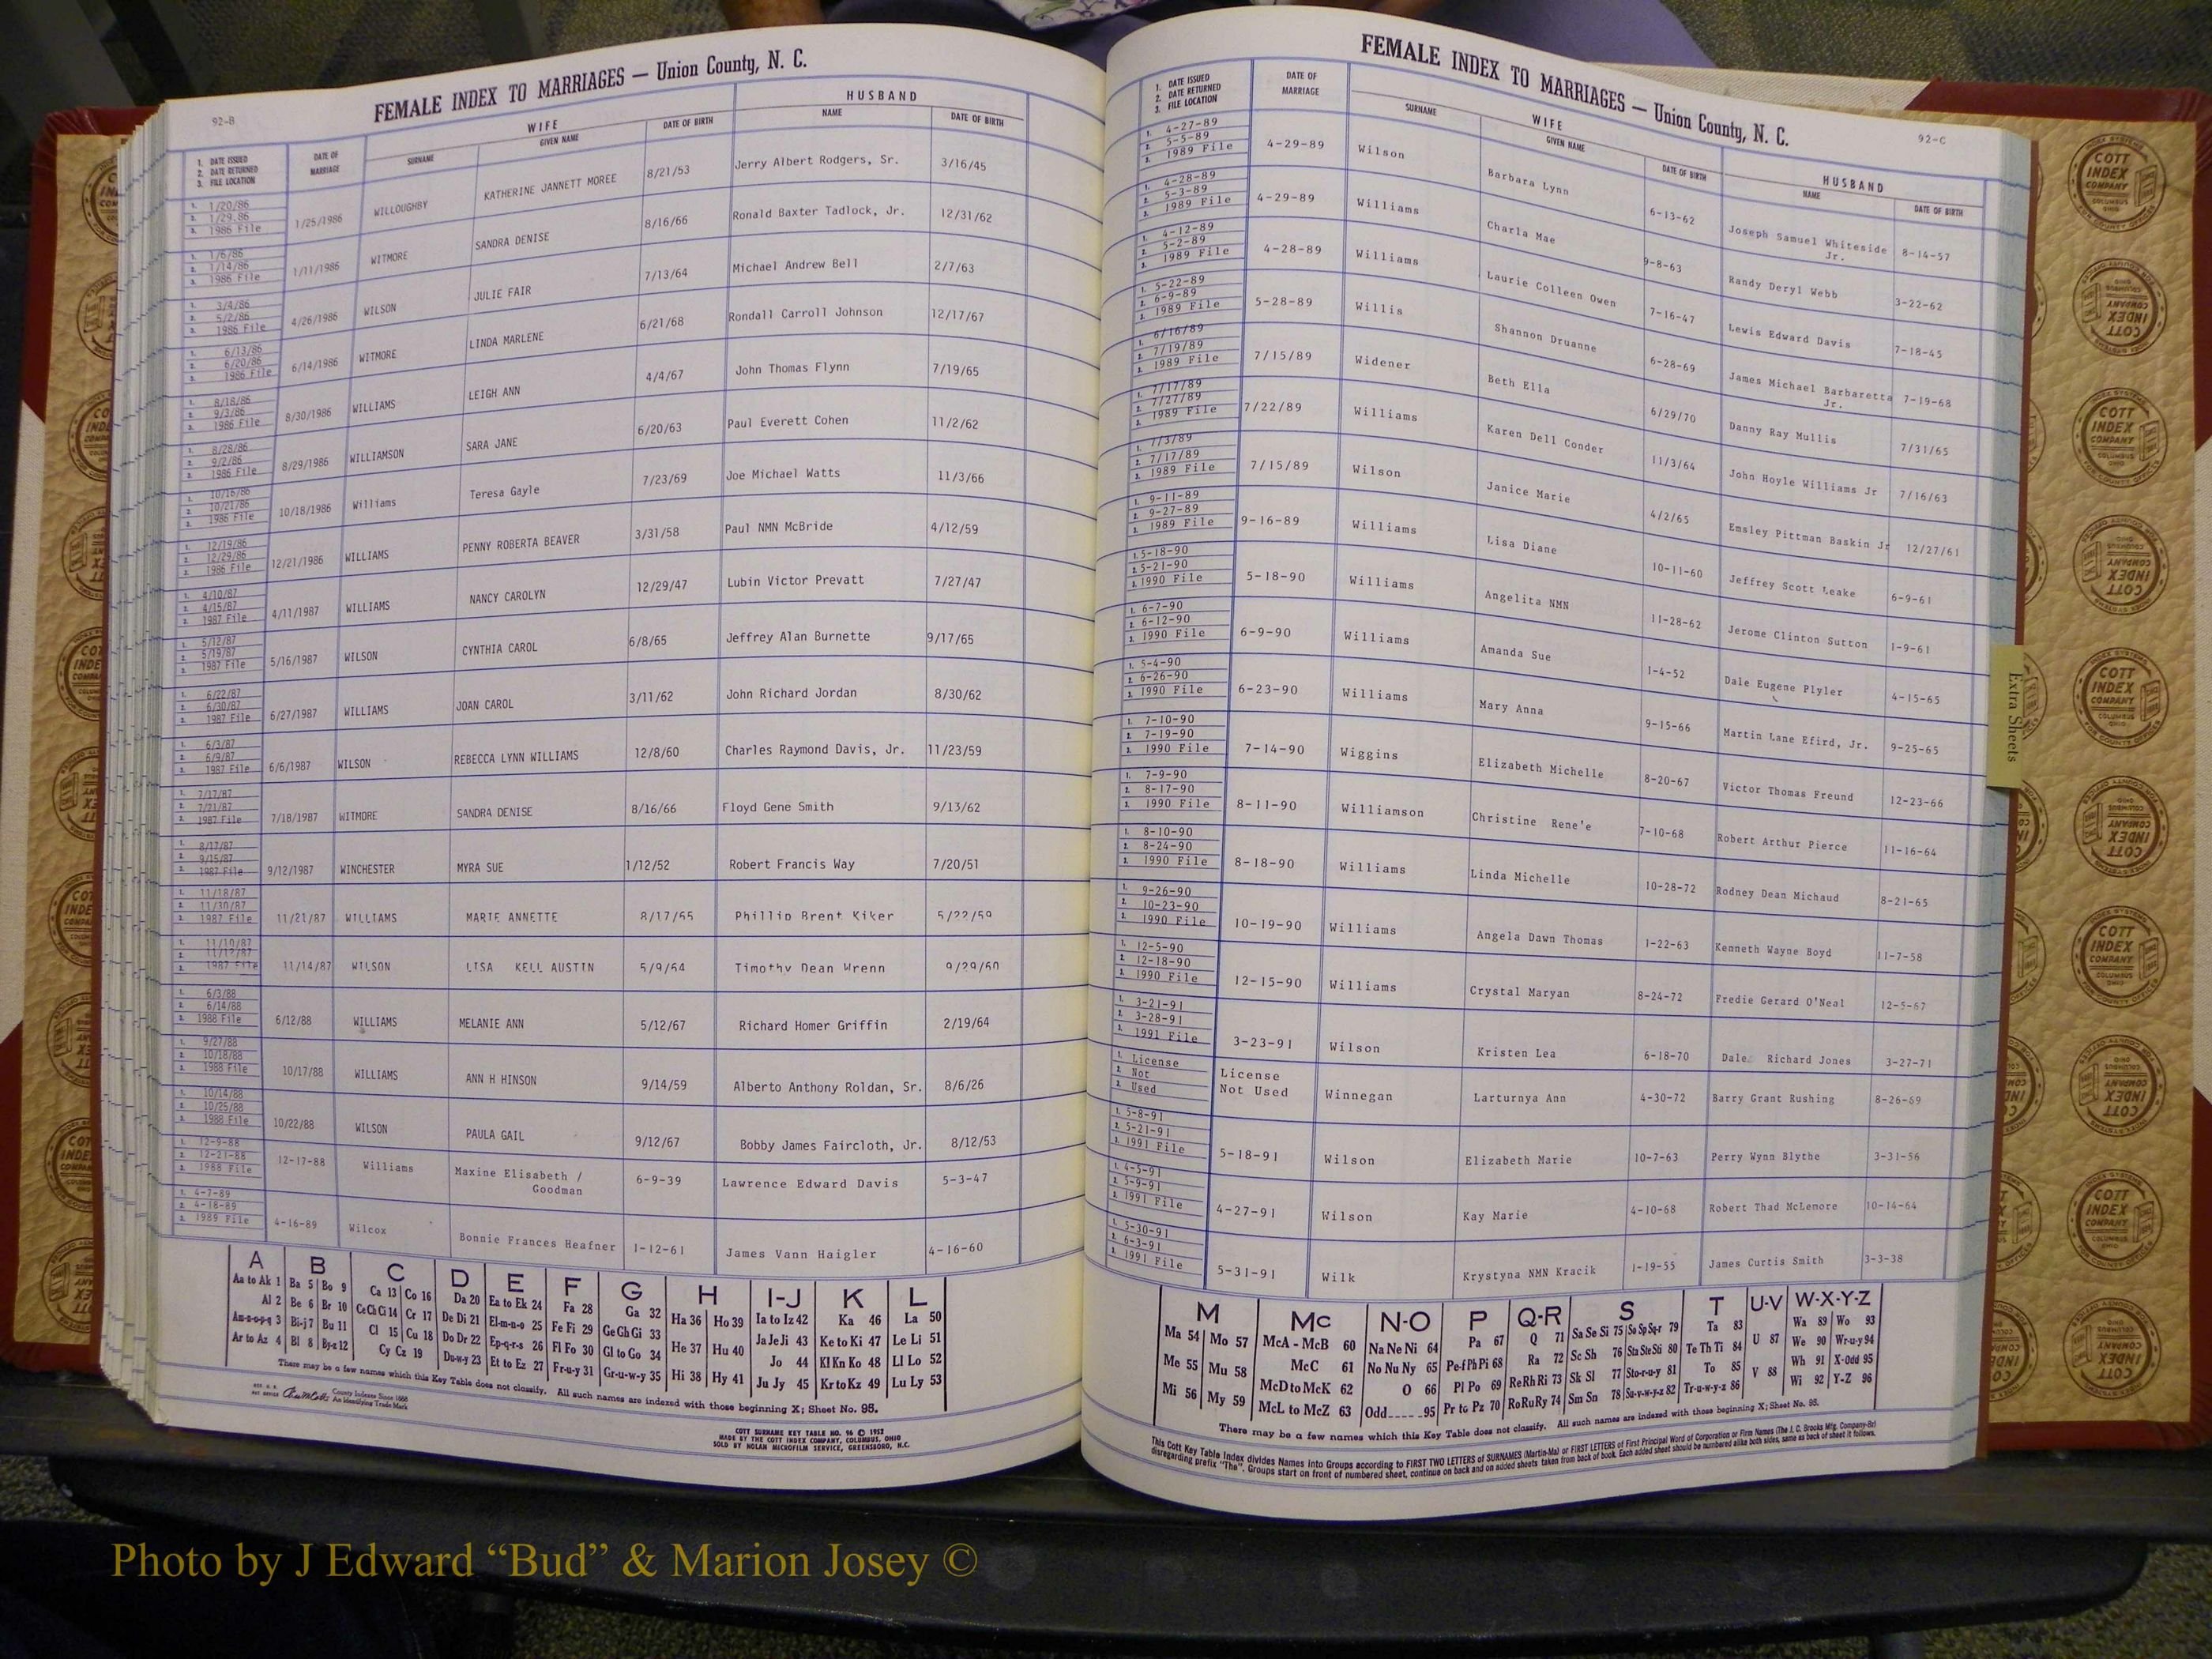 92-B
FEMALE INDEX TO MARRIAGES — Union County, N. C.
1. DATE ISSUED
2. DATE RETURNED
3. FILE LOCATION
DATE OF MARRIAGE
WIFE
SURNAME
GIVEN NAME
DATE OF BIRTH
HUSBAND
NAME
DATE OF BIRTH
1. 1/20/86 2. 1/29.86 3. 1986 File 1/25/1986 WILLOUGHBY KATHERINE JANNETT MOREE 8/21/53 Jerry Albert Rodgers, Sr. 3/16/45
1. 1/6/86 2. 1/14/86 3. 1986 File 1/11/1986 WITMORE SANDRA DENISE 8/16/66 Ronald Baxter Tadlock, Jr. 12/31/62
1. 3/4/86 2. 5/2/86 3. 1986 File 4/26/1986 WILSON JULIE FAIR 7/13/64 Michael Andrew Bell 2/7/63
1. 6/13/86 2. 6/20/86 3. 1986 File 6/14/1986 WITMORE LINDA MARLENE 6/21/68 Rondall Carroll Johnson 12/17/67
1. 8/18/86 2. 9/3/86 3. 1986 File 8/30/1986 WILLIAMS LEIGH ANN 4/4/67 John Thomas Flynn 7/19/65
1. 8/28/86 2. 9/2/86 3. 1986 File 8/29/1986 WILLIAMSON SARA JANE 6/20/63 Paul Everett Cohen 11/2/62
1. 10/16/86 2. 10/21/86 3. 1986 File 10/18/1986 Williams Teresa Gayle 7/23/69 Joe Michael Watts 11/3/66
1. 12/19/86 2. 12/29/86 3. 1986 File 12/21/1986 WILLIAMS PENNY ROBERTA BEAVER 3/31/58 Paul NMN McBride 4/12/59
1. 4/10/87 2. 4/15/87 3. 1987 File 4/11/1987 WILLIAMS NANCY CAROLYN 12/29/47 Lubin Victor Prevatt 7/27/47
1. 5/12/87 2. 5/19/87 3. 1987 File 5/16/1987 WILSON CYNTHIA CAROL 6/8/65 Jeffrey Alan Burnette 9/17/65
1. 6/22/87 2. 6/30/87 3. 1987 File 6/27/1987 WILLIAMS JOAN CAROL 3/11/62 John Richard Jordan 8/30/62
1. 6/3/87 2. 6/9/87 3. 1987 File 6/6/1987 WILSON REBECCA LYNN WILLIAMS 12/8/60 Charles Raymond Davis, Jr. 11/23/59
1. 7/17/87 2. 7/21/87 3. 1987 File 7/18/1987 WITMORE SANDRA DENISE 8/16/66 Floyd Gene Smith 9/13/62
1. 8/17/87 2. 9/15/87 3. 1987 File 9/12/1987 WINCHESTER MYRA SUE 1/12/52 Robert Francis Way 7/20/51
1. 11/18/87 2. 11/30/87 3. 1987 File 11/21/87 WILLIAMS MARIE ANNETTE 8/17/65 Phillip Brent Kiker 5/22/59
1. 11/10/87 2. 11/17/87 3. 1987 File 11/14/87 WILSON LISA KELL AUSTIN 5/9/64 Timothy Dean Wrenn 9/29/60
1. 6/3/88 2. 6/14/88 3. 1988 File 6/12/88 WILLIAMS MELANIE ANN 5/12/67 Richard Homer Griffin 2/19/64
1. 9/27/88 2. 10/18/88 3. 1988 File 10/17/88 WILLIAMS ANN H HINSON 9/14/59 Alberto Anthony Roldan, Sr. 8/6/26
1. 10/14/88 2. 10/25/88 3. 1988 File 10/22/88 WILSON PAULA GAIL 9/12/67 Bobby James Faircloth, Jr. 8/12/53
1. 12-9-88 2. 12-21-88 3. 1988 File 12-17-88 Williams Maxine Elisabeth / Goodman 6-9-39 Lawrence Edward Davis 5-3-47
1. 4-7-89 2. 4-18-89 3. 1989 File 4-16-89 Wilcox Bonnie Frances Heafner 1-12-61 James Vann Haigler 4-16-60
A B C D E F G H I-J K L
Aa to Ak 1 Ba 5 Bo 9 Ca 13 Co 16 Da 20 Ea to Ek 24 Fa 28 Ga 32 Ha 36 Ho 39 Ia to Iz 42 Ka 46 La 50
Al 2 Be 6 Br 10 Ce Ch Ci 14 Cr 17 De Di 21 El-m-n-o 25 Fe Fi 29 Ge Gh Gi 33 He 37 Hu 40 Ja Je Ji 43 Ke to Ki 47 Le Li 51
Am-n-o-p-q 3 Bi-j 7 Bu 11 Cl 15 Cu 18 Do Dr 22 Ep-q-r-s 26 Fl Fo 30 Gl to Go 34 Hi 38 Hy 41 Jo 44 Kl Kn Ko 48 Ll Lo 52
Ar to Az 4 Bl 8 By-z 12 Cy Cz 19 Du-w-y 23 Et to Ez 27 Fr-u-y 31 Gr-u-w-y 35 Ju Jy 45 Kr to Kz 49 Lu Ly 53
There may be a few names which this Key Table does not classify. All such names are indexed with those beginning X; Sheet No. 95.
County Indexes Since 1888
An Identifying Trade Mark
COTT SURNAME KEY TABLE NO. 96 © 1952
MADE BY THE COTT INDEX COMPANY, COLUMBUS, OHIO
SOLD BY NOLAN MICROFILM SERVICE, GREENSBORO, N.C.
FEMALE INDEX TO MARRIAGES — Union County, N. C.
92-C
1. DATE ISSUED
2. DATE RETURNED
3. FILE LOCATION
DATE OF MARRIAGE
WIFE
SURNAME
GIVEN NAME
DATE OF BIRTH
HUSBAND
NAME
DATE OF BIRTH
1. 4-27-89 2. 5-5-89 3. 1989 File 4-29-89 Wilson Barbara Lynn 6-13-62 Joseph Samuel Whiteside Jr. 8-14-57
1. 4-28-89 2. 5-3-89 3. 1989 File 4-29-89 Williams Charla Mae 9-8-63 Randy Deryl Webb 3-22-62
1. 4-12-89 2. 5-2-89 3. 1989 File 4-28-89 Williams Laurie Colleen Owen 7-16-47 Lewis Edward Davis 7-18-45
1. 5-22-89 2. 6-9-89 3. 1989 File 5-28-89 Willis Shannon Druanne 6-28-69 James Michael Barbaretta Jr. 7-19-68
1. 6/16/89 2. 7/19/89 3. 1989 File 7/15/89 Widener Beth Ella 6/29/70 Danny Ray Mullis 7/31/65
1. 7/17/89 2. 7/27/89 3. 1989 File 7/22/89 Williams Karen Dell Conder 11/3/64 John Hoyle Williams Jr 7/16/63
1. 7/3/89 2. 7/17/89 3. 1989 File 7/15/89 Wilson Janice Marie 4/2/65 Emsley Pittman Baskin Jr 12/27/61
1. 9-11-89 2. 9-27-89 3. 1989 File 9-16-89 Williams Lisa Diane 10-11-60 Jeffrey Scott Leake 6-9-61
1. 5-18-90 2. 5-21-90 3. 1990 File 5-18-90 Williams Angelita NMN 11-28-62 Jerome Clinton Sutton 1-9-61
1. 6-7-90 2. 6-12-90 3. 1990 File 6-9-90 Williams Amanda Sue 1-4-52 Dale Eugene Plyler 4-15-65
1. 5-4-90 2. 6-26-90 3. 1990 File 6-23-90 Williams Mary Anna 9-15-66 Martin Lane Efird, Jr. 9-25-65
1. 7-10-90 2. 7-19-90 3. 1990 File 7-14-90 Wiggins Elizabeth Michelle 8-20-67 Victor Thomas Freund 12-23-66
1. 7-9-90 2. 8-17-90 3. 1990 File 8-11-90 Williamson Christine Rene'e 7-10-68 Robert Arthur Pierce 11-16-64
1. 8-10-90 2. 8-24-90 3. 1990 File 8-18-90 Williams Linda Michelle 10-28-72 Rodney Dean Michaud 8-21-65
1. 9-26-90 2. 10-23-90 3. 1990 File 10-19-90 Williams Angela Dawn Thomas 1-22-63 Kenneth Wayne Boyd 11-7-58
1. 12-5-90 2. 12-18-90 3. 1990 File 12-15-90 Williams Crystal Maryan 8-24-72 Fredie Gerard O'Neal 12-5-67
1. 3-21-91 2. 3-28-91 3. 1991 File 3-23-91 Wilson Kristen Lea 6-18-70 Dale Richard Jones 3-27-71
1. License 2. Not 3. Used License Not Used Winnegan Larturnya Ann 4-30-72 Barry Grant Rushing 8-26-69
1. 5-8-91 2. 5-21-91 3. 1991 File 5-18-91 Wilson Elizabeth Marie 10-7-63 Perry Wynn Blythe 3-31-56
1. 4-5-91 2. 5-9-91 3. 1991 File 4-27-91 Wilson Kay Marie 4-10-68 Robert Thad McLemore 10-14-64
1. 5-30-91 2. 6-3-91 3. 1991 File 5-31-91 Wilk Krystyna NMN Kracik 1-19-55 James Curtis Smith 3-3-38
M Mc N-O P Q-R S T U-V W-X-Y-Z
Ma 54 Mo 57 McA - McB 60 Na Ne Ni 64 Pa 67 Q 71 Sa Se Si 75 So Sp Sq-r 79 Ta 83 U 87 Wa 89 Wo 93
Me 55 Mu 58 McC 61 No Nu Ny 65 Pe-f Ph Pi 68 Ra 72 Sc Sh 76 Sta Ste Sti 80 Te Th Ti 84 V 88 We 90 Wr-u-y 94
Mi 56 My 59 McD to McK 62 O 66 Pl Po 69 Re Rh Ri 73 Sk Sl 77 Sto-r-u-y 81 To 85 Wh 91 X-Odd 95
McL to McZ 63 Odd 95 Pr to Pz 70 Ro Ru Ry 74 Sm Sn 78 Su-v-w-y-z 82 Tr-u-w-y-z 86 Wi 92 Y-Z 96
There may be a few names which this Key Table does not classify. All such names are indexed with those beginning X; Sheet No. 95.
This Cott Key Table Index divides Names into Groups according to FIRST TWO LETTERS of SURNAMES (Martin-Ma) or FIRST LETTERS of First Principal Word of Corporation or Firm Names (The J. C. Brooks Mfg. Company-Br)
disregarding prefix "The". Groups start on front of numbered sheet, continue on back and on added sheets taken from back of book. Each added sheet should be numbered alike both sides, same as back of sheet it follows.
Extra Sheets
INDEX SYSTEMS
COTT
INDEX
COMPANY
COLUMBUS
OHIO
FOR COUNTY OFFICES
Photo by J Edward “Bud” & Marion Josey ©